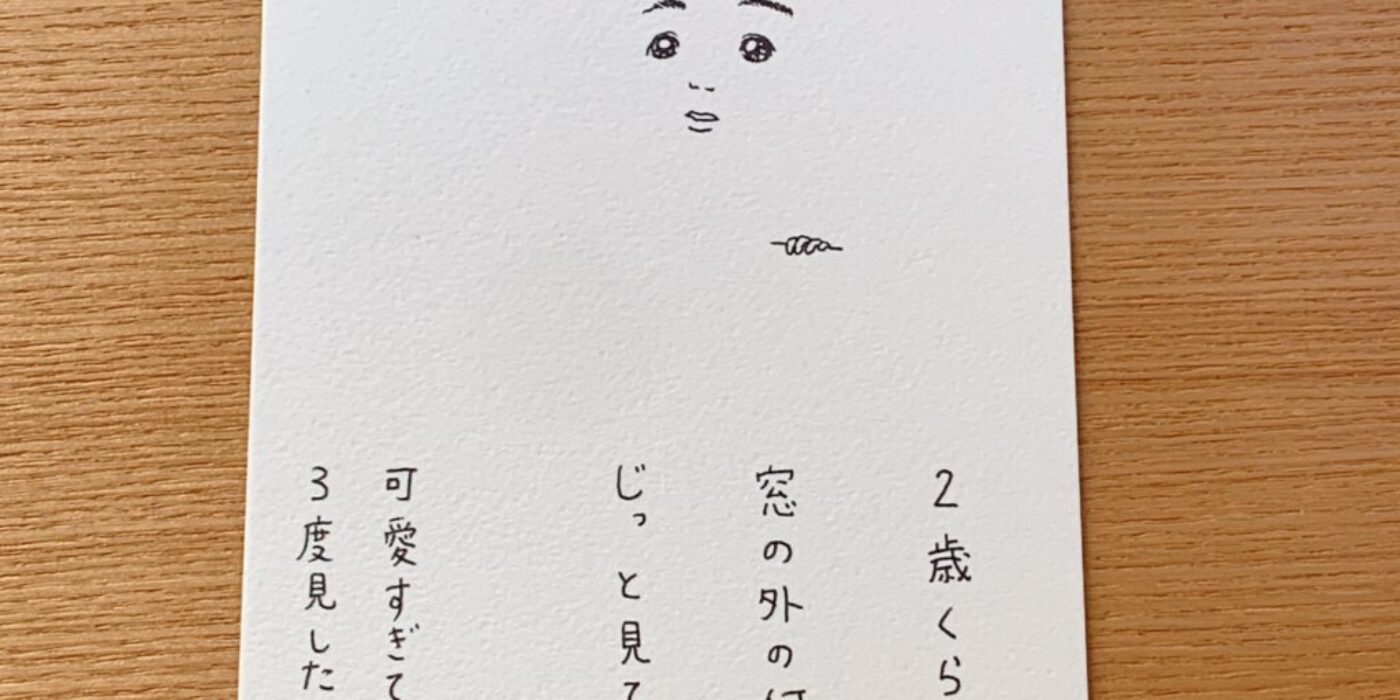 ２歳くら
窓の外の
じっと見て
可愛すぎて
３度見した